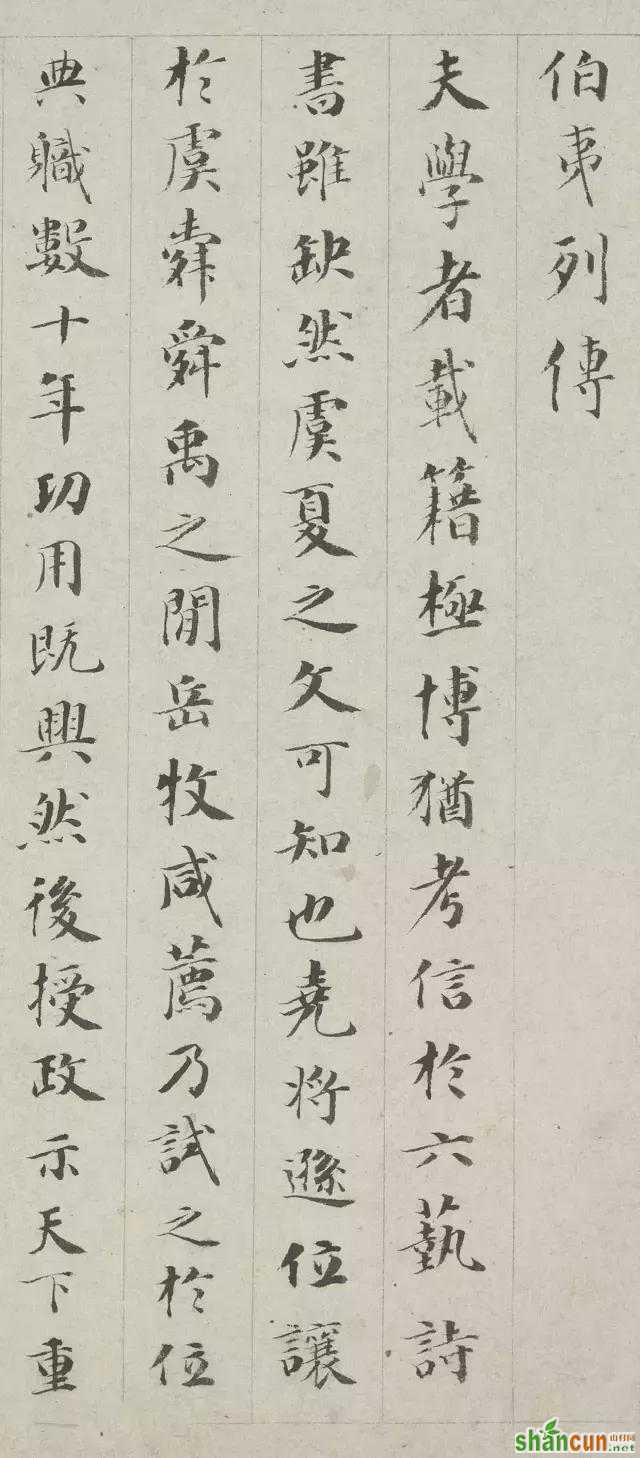 伯夷列傳
夫學者載籍極博猶考信於六藝詩
書雖缺然虞夏之文可知也堯將遜位讓
於虞舜舜禹之閒岳牧咸薦乃試之於位
典職數十年功用既興然後授政示天下重
shancun 山村网
.net